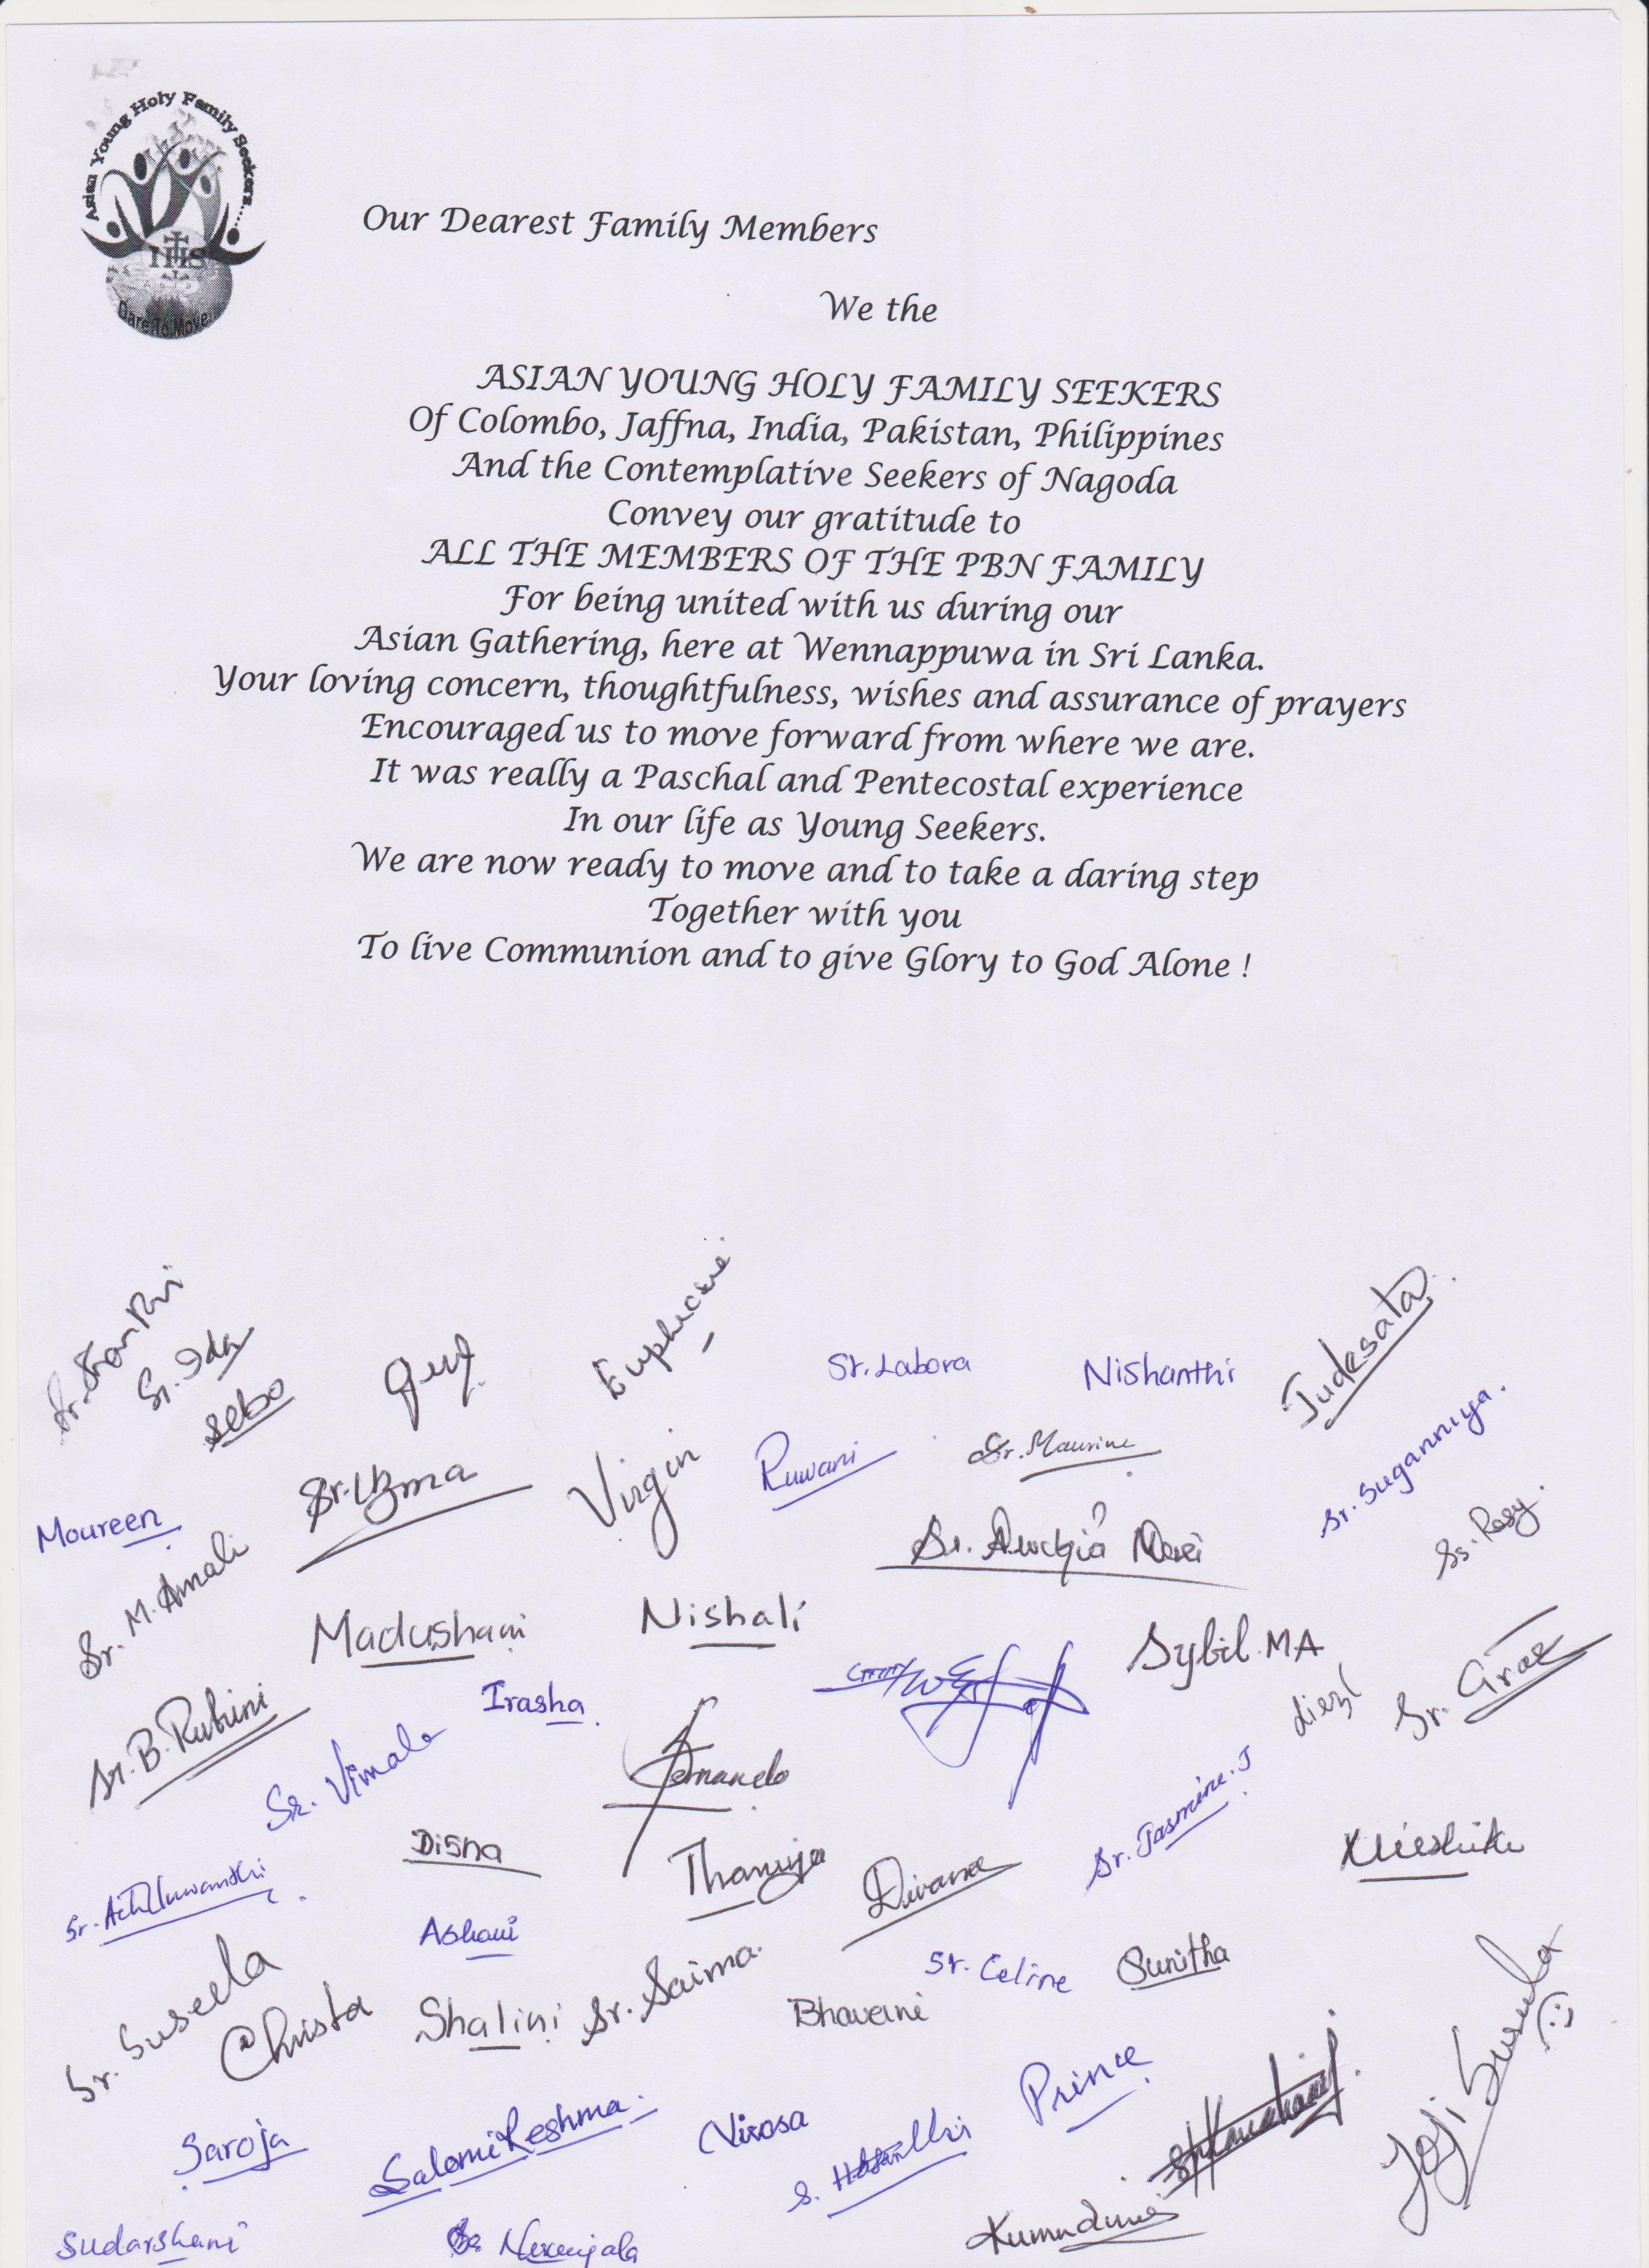 Asian Young Holy Family Seekers....
IHS
Dare To Move
Our Dearest Family Members
We the
ASIAN YOUNG HOLY FAMILY SEEKERS
Of Colombo, Jaffna, India, Pakistan, Philippines
And the Contemplative Seekers of Nagoda
Convey our gratitude to
ALL THE MEMBERS OF THE PBN FAMILY
For being united with us during our
Asian Gathering, here at Wennappuwa in Sri Lanka.
Your loving concern, thoughtfulness, wishes and assurance of prayers
Encouraged us to move forward from where we are.
It was really a Paschal and Pentecostal experience
In our life as Young Seekers.
We are now ready to move and to take a daring step
Together with you
To live Communion and to give Glory to God Alone !
Sr. Ida
Sebo
Sr. Labora
Nishanthi
Judesata
Moureen
Sr. Uzma
Virgin
Ruwani
Sr. Maurine
Sr. Suganniya.
Rosy.
Sr. M. Amali
Madushani
Nishali
Sybil. MA
Sr. B. Rubini
Sr. Vimala
Irasha
Fernando
Sr. Grace
Disna
Thanuja
Sr. Jasmine. J
Ashani
Sr. Celine
Sunitha
Sr. Suseela
Christa
Shalini
Sr. Saima.
Bhavani
Saroja
Salomi Reshma.
Virosa
Prince
Joji Suseela
Sudarshani
Kumudini